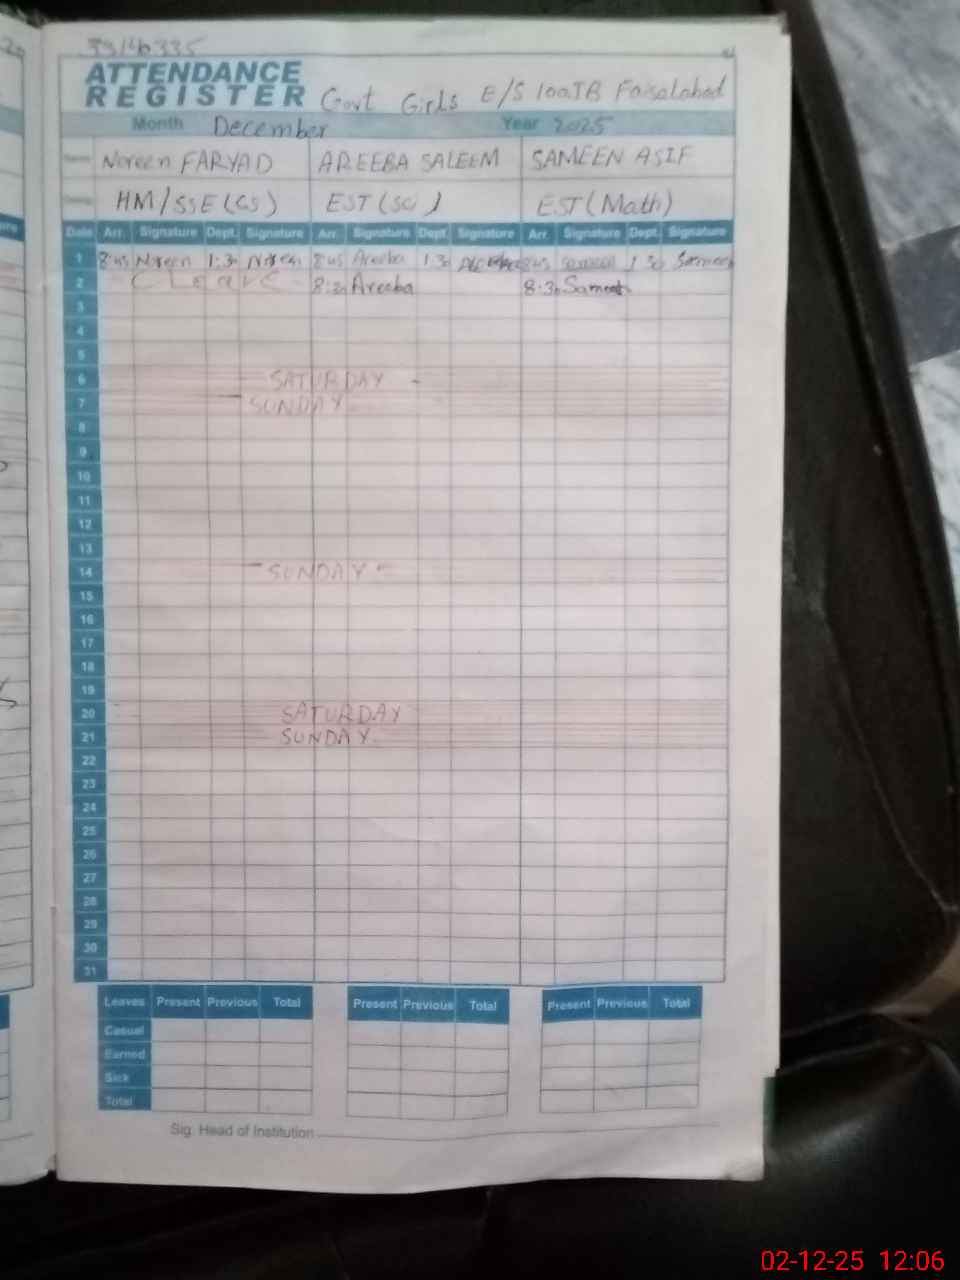 33140335
ATTENDANCE
REGISTER Govt Girls E/S 100JB Faisalabad
Month December Year 2025
Name Noreen FARYAD AREEBA SALEEM SAMEEN ASIF
HM/SSE(CS) EST (Sci) EST (Math)
Date Arr. Signature Dept. Signature Arr. Signature Dept. Signature Arr. Signature Dept. Signature
1 8:45 Noreen 1:30 Noreen 8:45 Areeba 1:30 Areeba 8:45 Sameen 1:30 Sameen
2 C Leave 8:30 Areeba 8:30 Sameen
3
4
5
6 SATURDAY
7 SUNDAY
8
9
10
11
12
13
14 SUNDAY
15
16
17
18
19
20 SATURDAY
21 SUNDAY
22
23
24
25
26
27
28
29
30
31
Leaves Present Previous Total Present Previous Total Present Previous Total
Casual
Earned
Sick
Total
Sig. Head of Institution
02-12-25 12:06